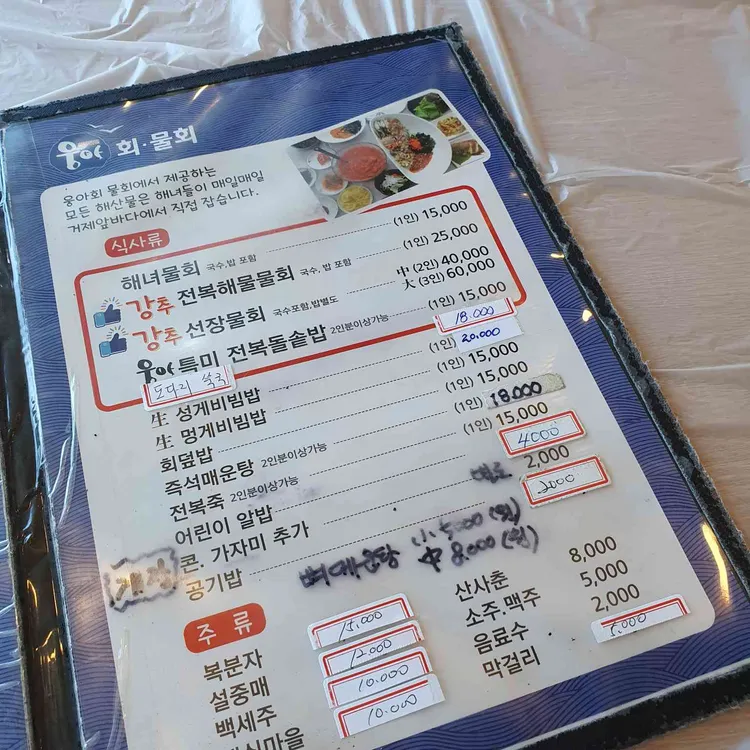 웅아 회·물회
웅아회 물회에서 제공하는
모든 해산물은 해녀들이 매일매일
거제앞바다에서 직접 잡습니다.
식사류
해녀물회 국수,밥 포함 (1인) 15,000
강추 전복해물물회 국수, 밥 포함 (1인) 25,000
강추 선장물회 국수포함,밥별도 中 (2인) 40,000
大 (3인) 60,000
웅아 특미 전복돌솥밥 2인분이상가능 (1인) 15,000
도다리 쑥국 18.000
生 성게비빔밥 (1인) 20,000
生 멍게비빔밥 (1인) 15,000
회덮밥 (1인) 15,000
즉석매운탕 2인분이상가능 (1인) 18.000
전복죽 2인분이상가능 (1인) 15,000
어린이 알밥 4000
콘. 가자미 추가 2,000
공기밥 2000
뼈매운탕 小 5000 (원)
中 8.000 (원)
주 류
복분자 15,000
설중매 12.000
백세주 10.000
10.000
산사춘 8,000
소주.맥주 5,000
음료수 2,000
막걸리 5.000